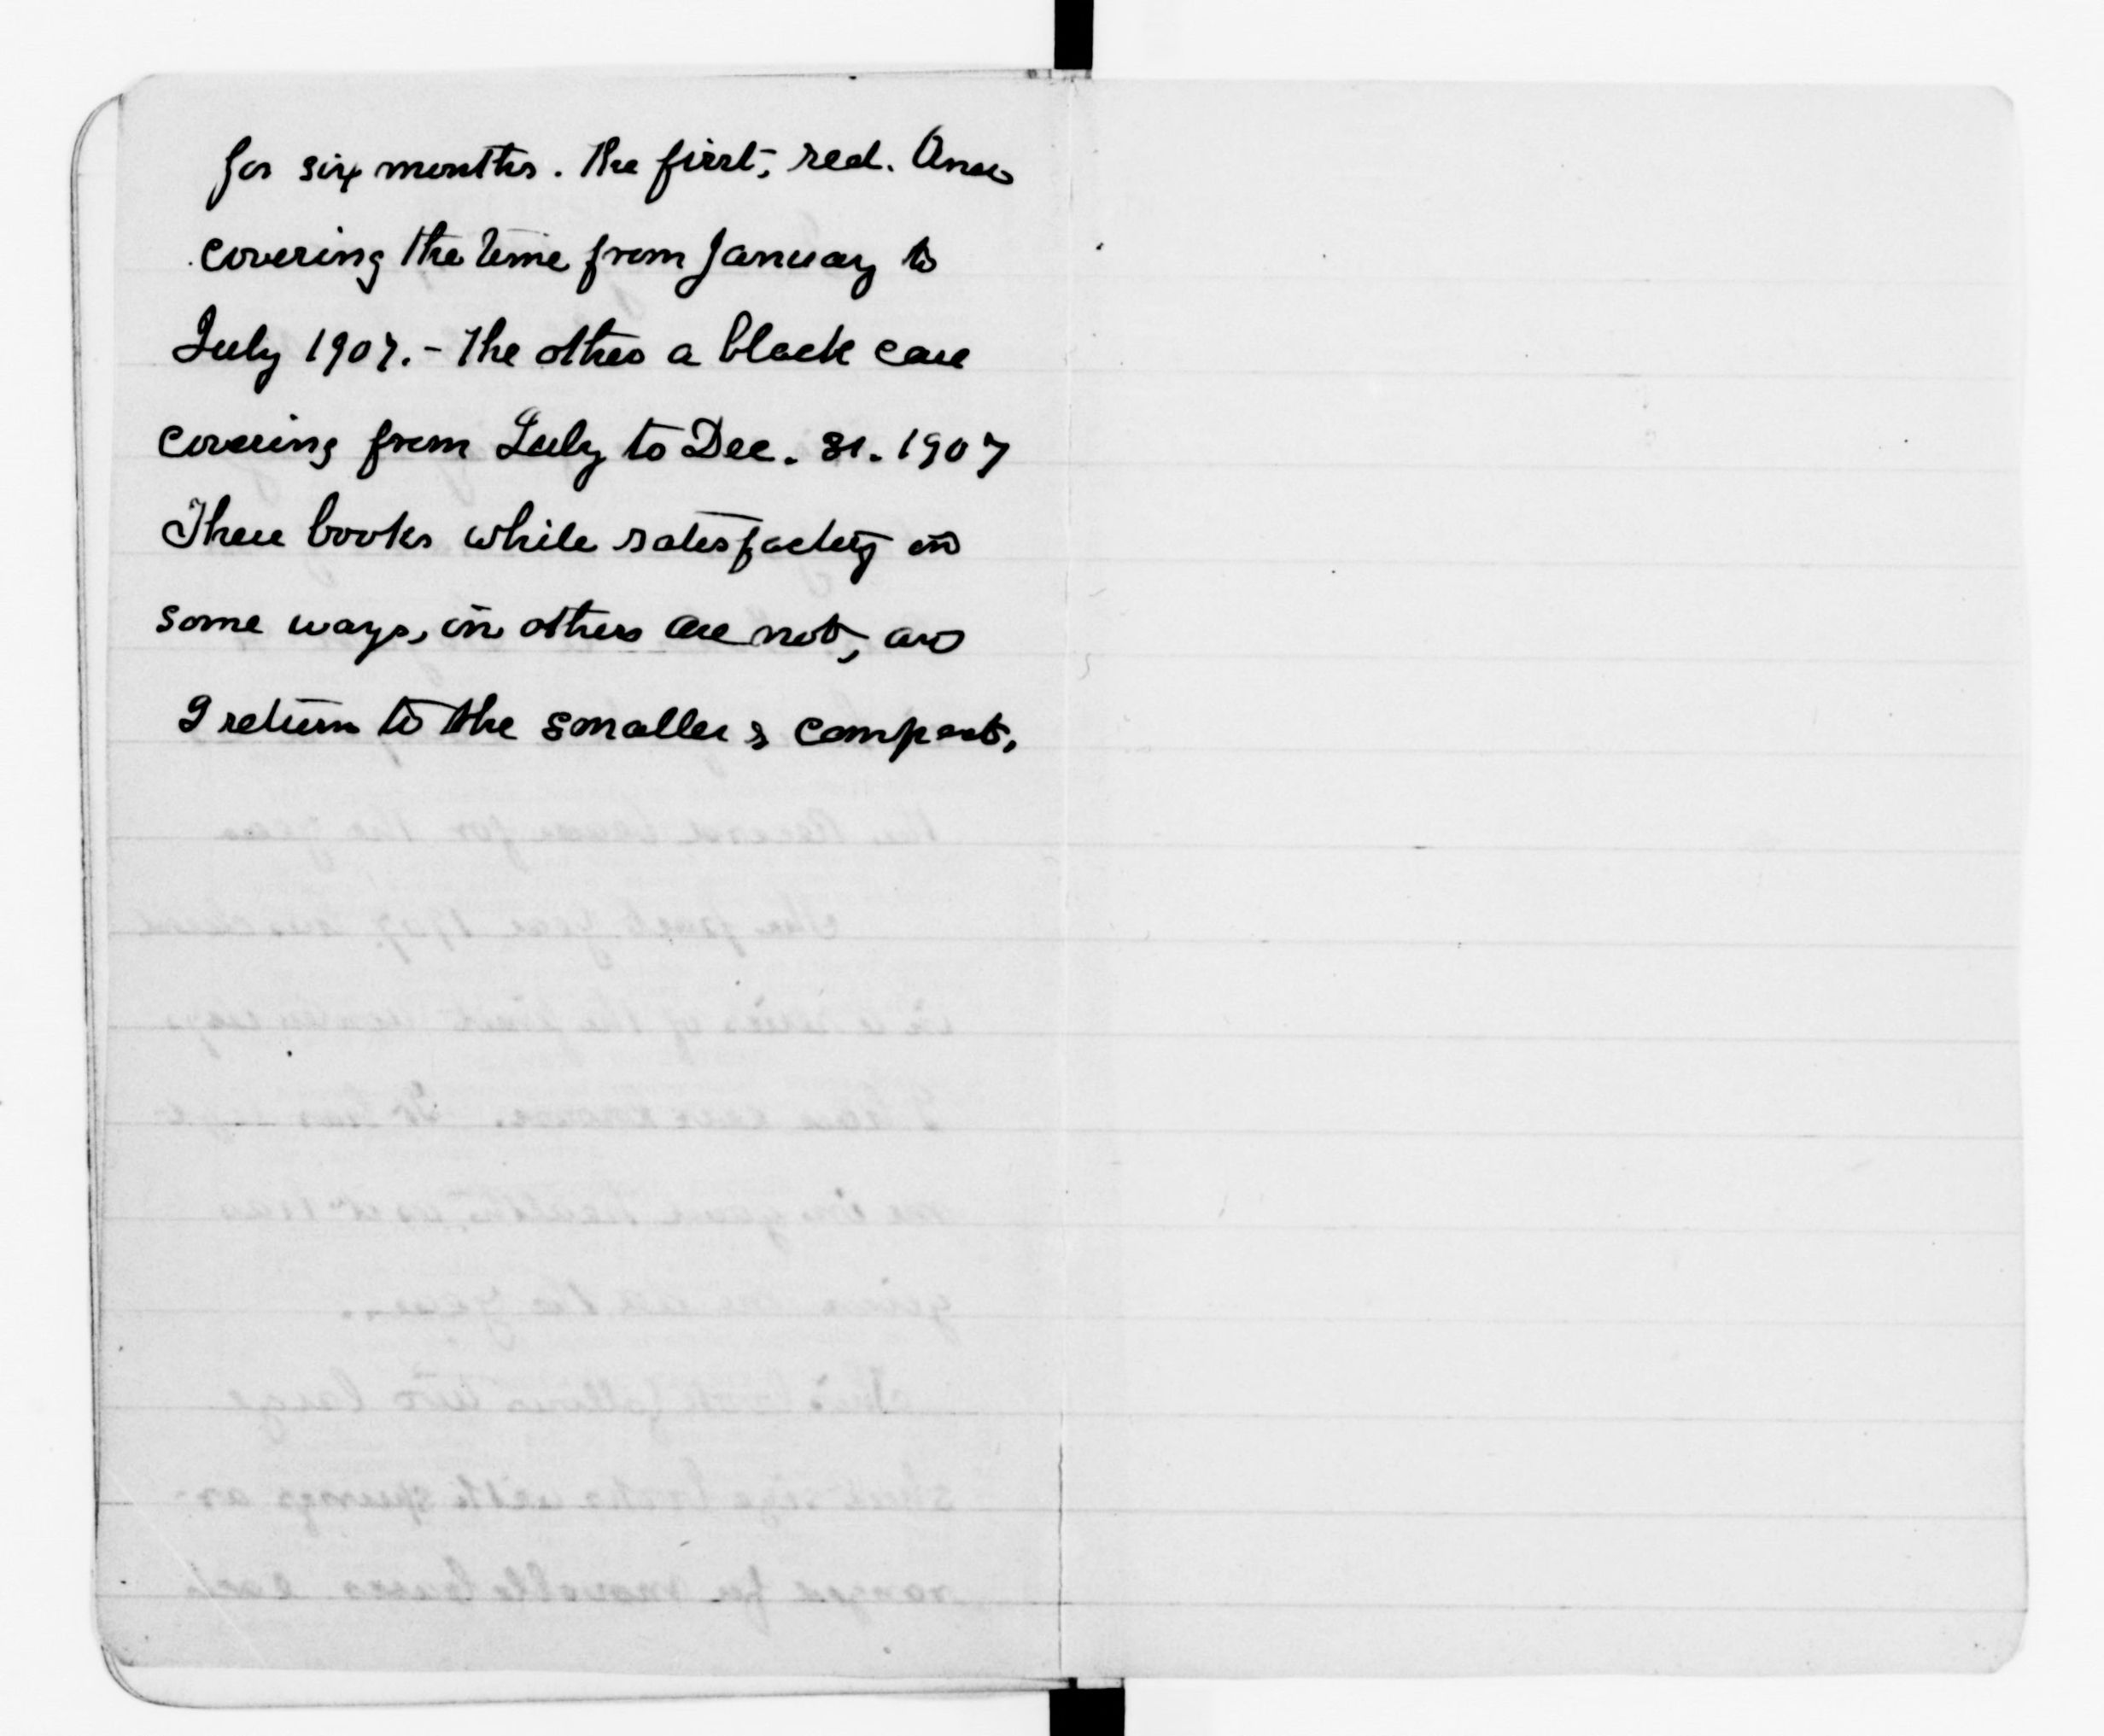 for six months. The first, red. One
covering the time from January to
July 1907. - The other a black case
covering from July to Dec. 31. 1907
These books while satisfactory in
some ways, in others are not, and
I return to the smaller & compact,